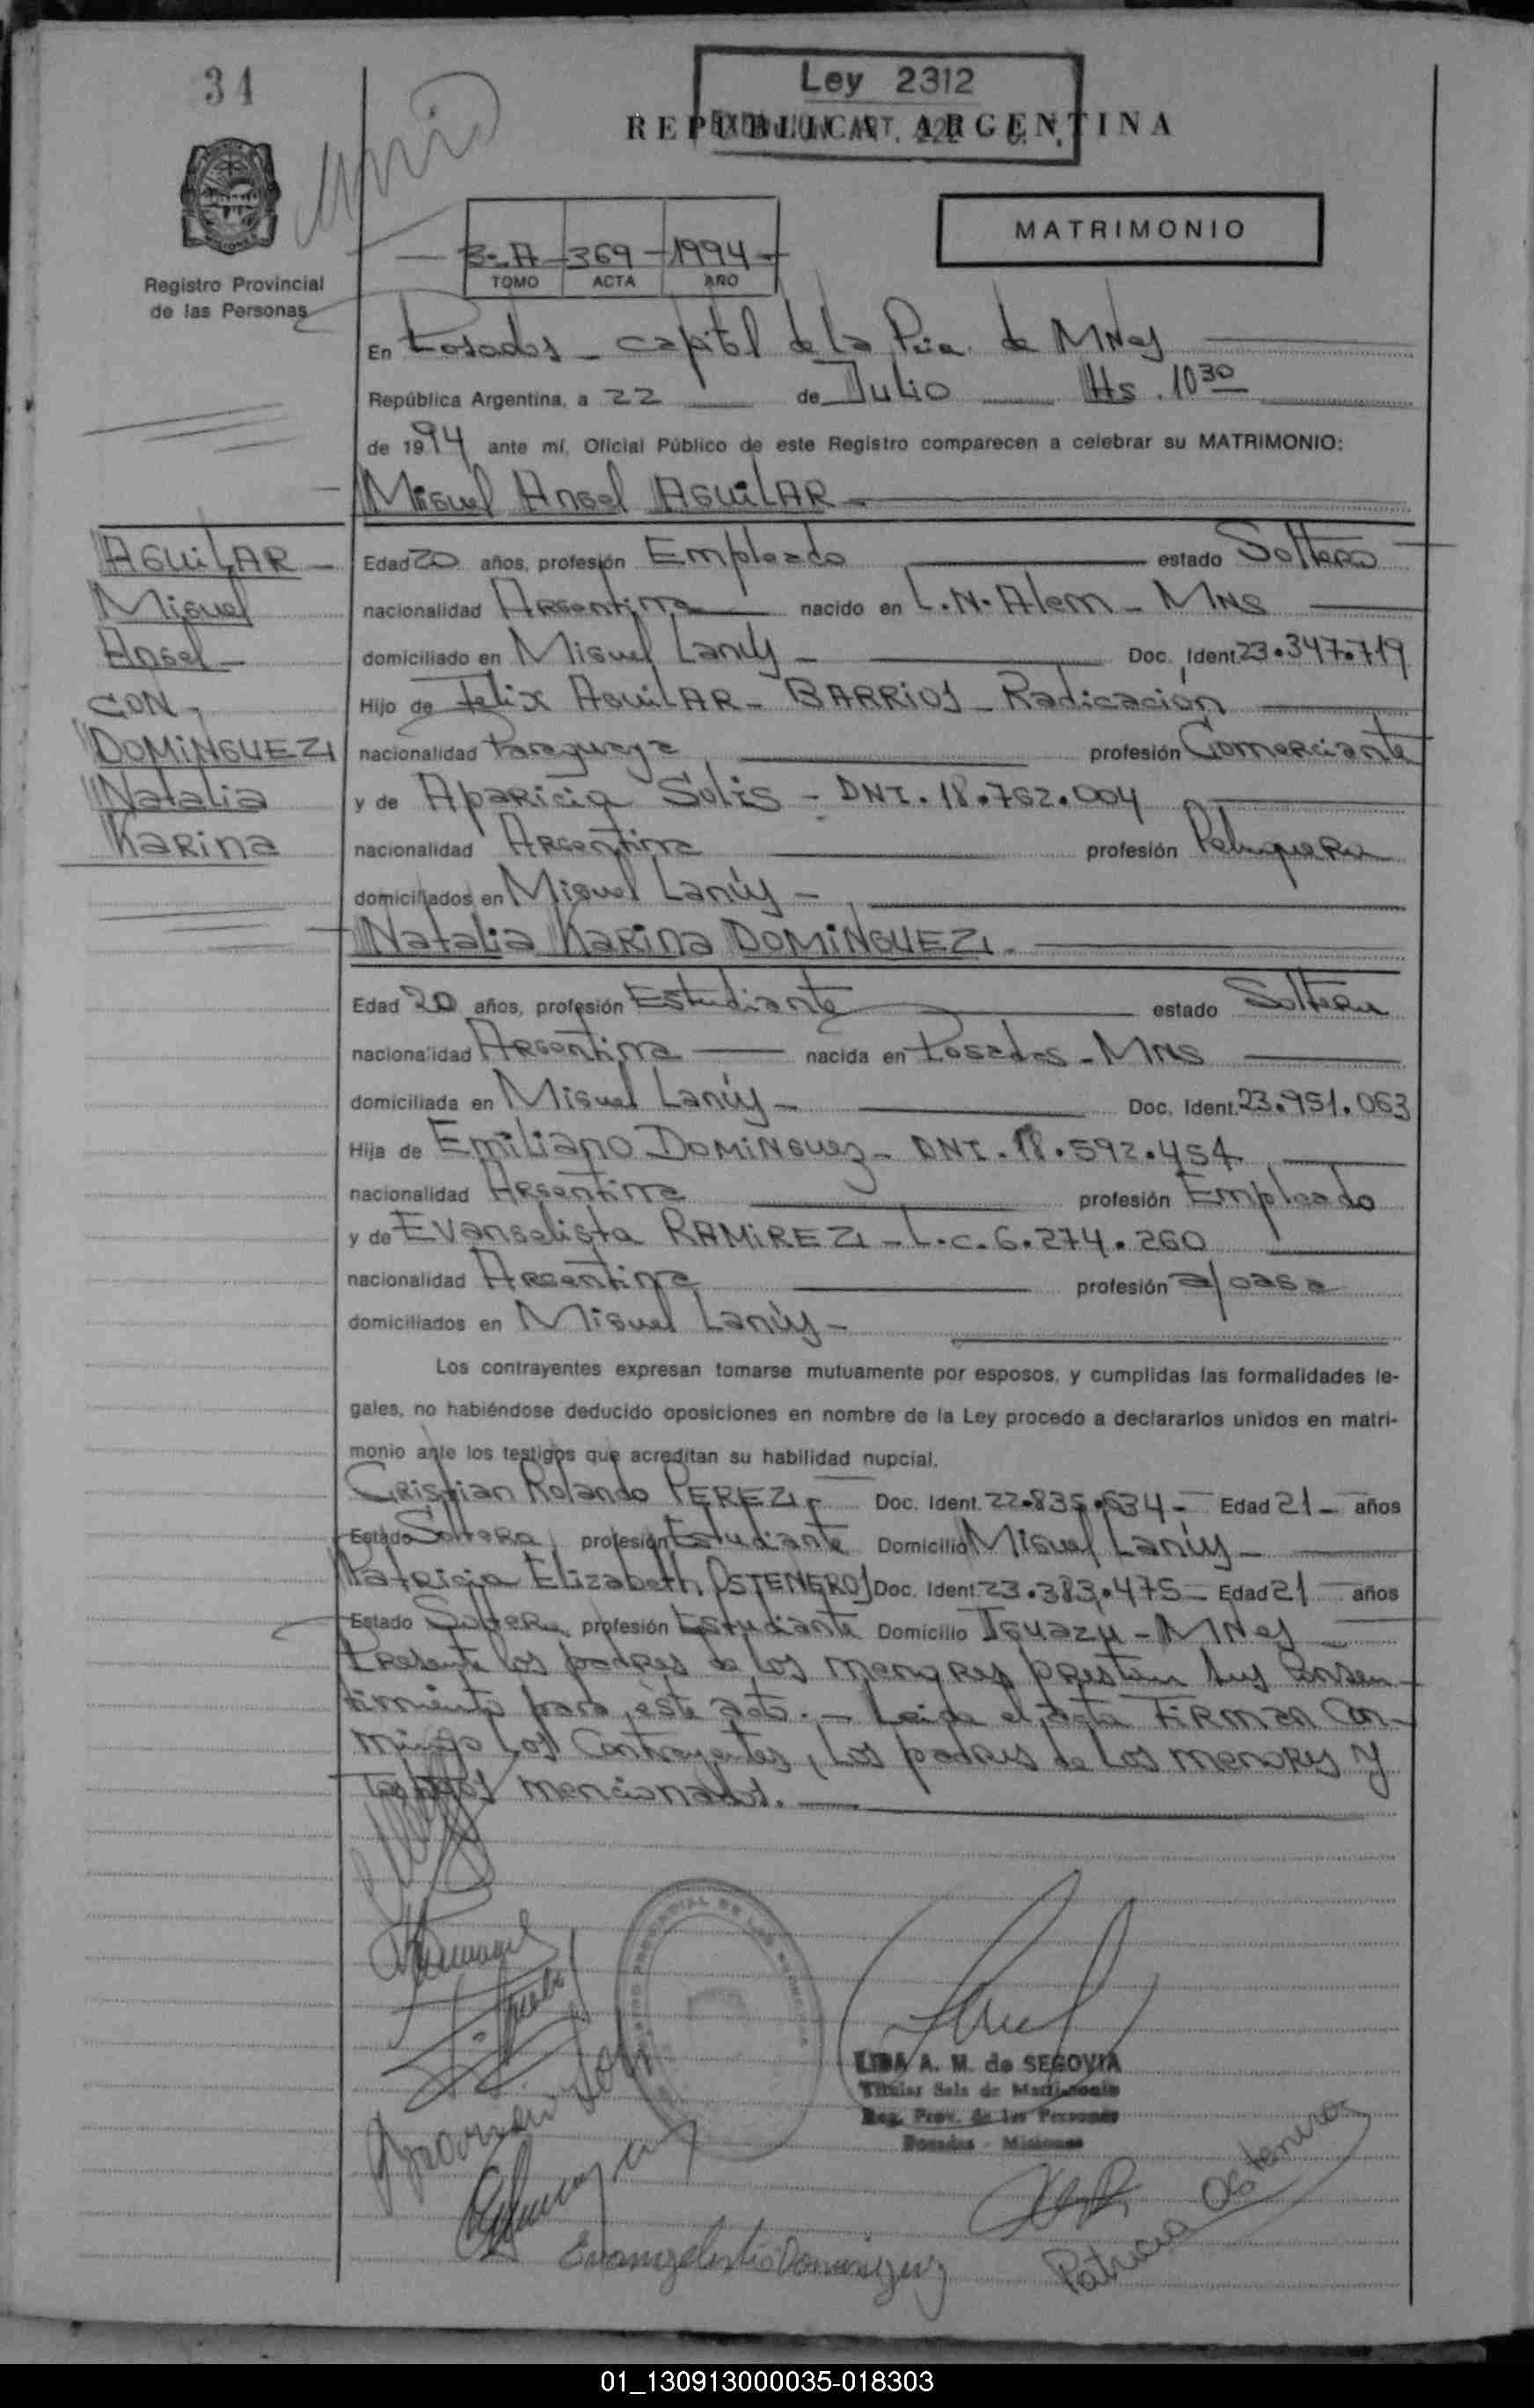 34
Ley 2312
REPUBLICA ARGENTINA
MATRIMONIO
3-A - 369 - 1994 -
TOMO ACTA AÑO
Registro Provincial
de las Personas
En Posadas - capital de la Pcia. de MNes
República Argentina, a 22 de Julio Hs. 10 30
de 1994 ante mí, Oficial Público de este Registro comparecen a celebrar su MATRIMONIO:
Miguel Angel AGUILAR -
AGUILAR -
Miguel
Angel -
CON -
DOMINGUEZ
Natalia
Karina
Edad 20 años, profesión Empleado estado Soltero
nacionalidad Argentina nacido en L.N. Alem - MNS
domiciliado en Miguel Lanús - Doc. Ident. 23.347.719
Hijo de Felix AGUILAR - BARRIOS - Radicación
nacionalidad Paraguaya profesión Comerciante
y de Aparicia Solis - DNI. 18.762.004
nacionalidad Argentina profesión Peluquera
domiciliados en Miguel Lanús -
Natalia Karina DOMINGUEZ.
Edad 20 años, profesión Estudiante estado Soltera
nacionalidad Argentina nacida en Posadas - MNS
domiciliada en Miguel Lanús - Doc. Ident. 23.951.063
Hija de Emiliano DOMINGUEZ - DNI. 18.592.454
nacionalidad Argentina profesión Empleado
y de Evangelista RAMIREZ - L.C. 6.274.260
nacionalidad Argentina profesión a/casa
domiciliados en Miguel Lanús -
Los contrayentes expresan tomarse mutuamente por esposos, y cumplidas las formalidades le-
gales, no habiéndose deducido oposiciones en nombre de la Ley procedo a declararlos unidos en matri-
monio ante los testigos que acreditan su habilidad nupcial.
Cristian Rolando PEREZ - Doc. Ident. 22.835.634 - Edad 21 - años
Estado Soltero profesión Estudiante Domicilio Miguel Lanús -
Patricia Elizabeth OSTENEROS Doc. Ident. 23.383.475 - Edad 21 años
Estado Soltera profesión Estudiante Domicilio Iguazu - MNes
Presente los padres de los menores prestan sus consen-
timiento para este acto. - Leida el acta FIRMAN con-
migo los contrayentes, los padres de los menores y
Testigos mencionados.
LIDA A. M. de SEGOVIA
Titular Sala de Matrimonio
Reg. Prov. de las Personas
Posadas - Misiones
Evangelista Dominguez
Patricia Osteneros
01_130913000035-018303